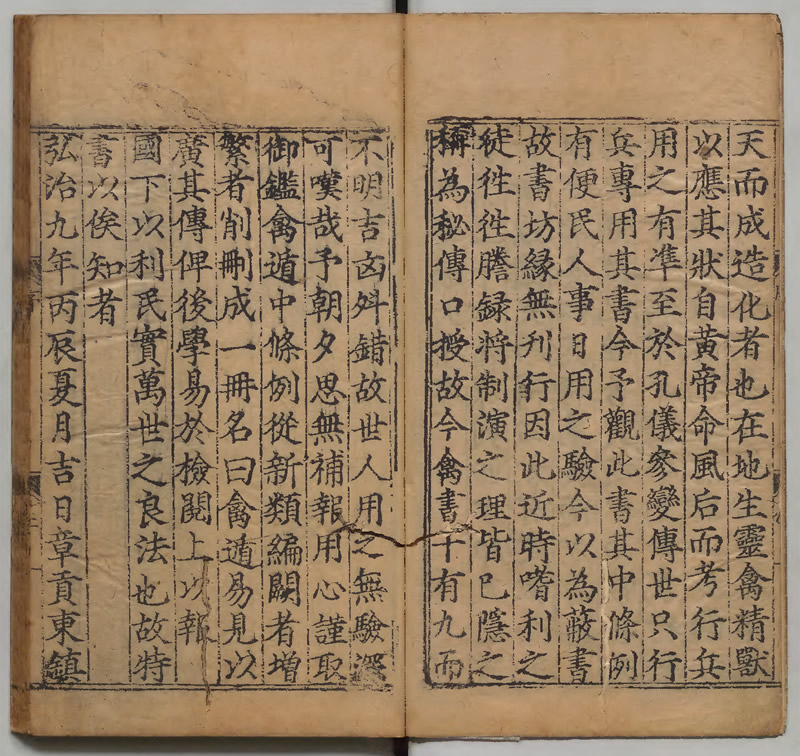 天而成造化者也在地生靈禽精獸
以應其狀自黃帝命風后而考行兵
用之有準至於孔儀參變傳世只行
兵專用其書今予觀此書其中條例
有便民人事日用之驗今以為蔽書
故書坊緣無刊行因此近時嗜利之
徒徃徃謄録將制演之理皆已隱之
稱為秘傳口授故今禽書十有九而
不明吉凶舛錯故世人用之無驗深
可嘆哉予朝夕思無補報用心謹取
御鑑禽遁中條例從新類編闕者増
繁者削刪成一冊名曰禽遁易見以
廣其傳俾後學易於檢閱上以報
國下以利民實萬世之良法也故特
書以俟知者
弘治九年丙辰夏月吉日章貢東鎮